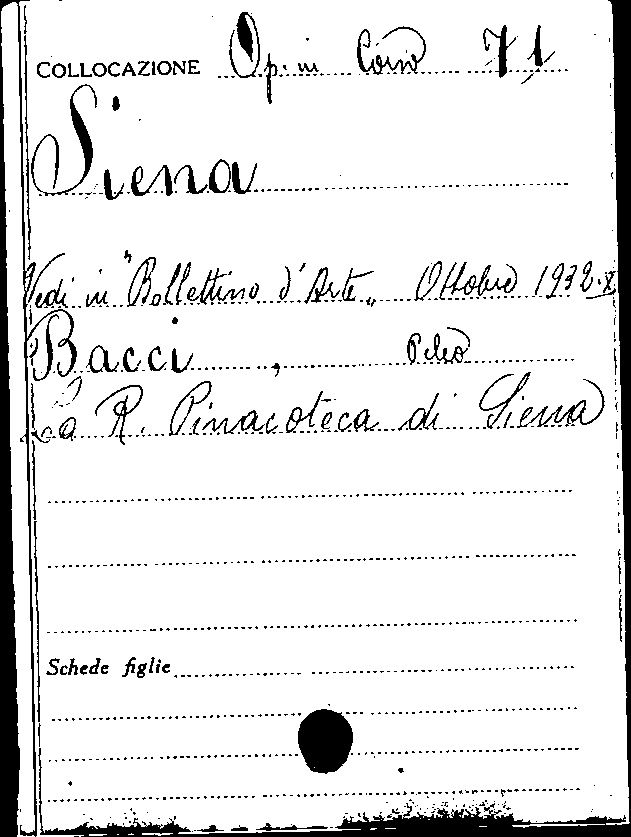 COLLOCAZIONE Op. in Corso 71
Siena
Vedi in "Bollettino d'Arte„ Ottobre 1932-X
Bacci, Peleo
La R. Pinacoteca di Siena
Schede figlie